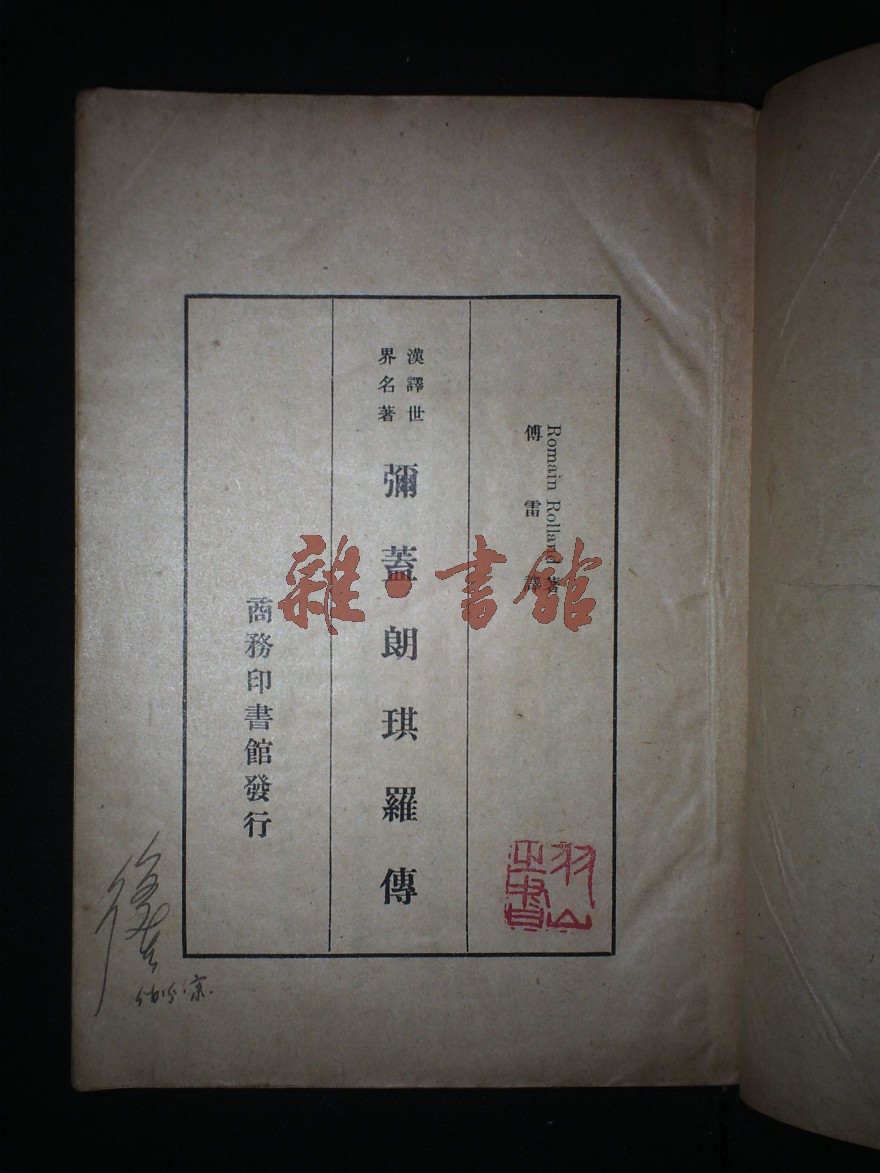 Romain Rolland 著
傅雷譯
漢譯世
界名著
彌蓋朗琪羅傳
商務印書館發行
雜·書館
羽山
之書